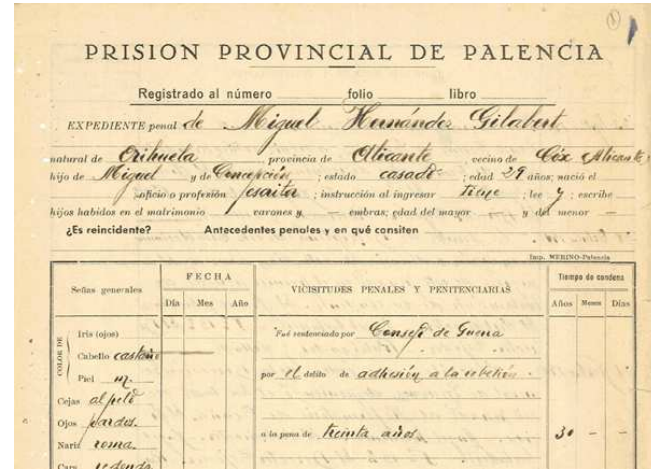 PRISION PROVINCIAL DE PALENCIA
Registrado al número folio libro
EXPEDIENTE penal de Miguel Hernández Gilabert
natural de Orihuela provincia de Alicante vecino de Cóx (Alicante)
hijo de Miguel y de Concepción ; estado casado ; edad 29 años; nació el
oficio o profesión escritor ; instrucción al ingresar tiene ; lee y ; escribe
hijos habidos en el matrimonio varones y embras; edad del mayor y del menor —
¿Es reincidente? Antecedentes penales y en qué consiten
Imp. MERINO-Palencia
Señas generales FECHA VICISITUDES PENALES Y PENITENCIARIAS Tiempo de condena
Día Mes Año Años Meses Días
COLOR DE
Iris (ojos) Fué sentenciado por Consejo de Guerra
Cabello castaño
Piel por el delito de adhesión a la rebelión
Cejas al pelo
Ojos pardos.
Nariz roma. a la pena de treinta años. 30 — —
Cara redonda